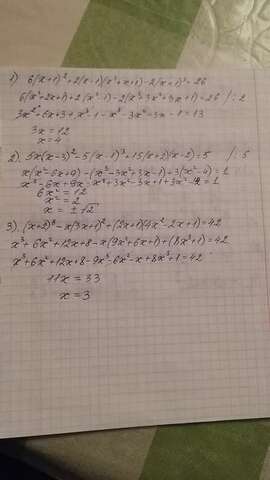 1) 6(x+1)²+2(x-1)(x²+x+1)-2(x+1)³=26
6(x²+2x+1)+2(x³-1)-2(x³+3x²+3x+1)=26 /:2
3x²+6x+3+x³-1-x³-3x²-3x-1=13
3x=12
x=4
2) 5x(x-3)²-5(x-1)³+15(x+2)(x-2)=5 /:5
x(x²-6x+9)-(x³-3x²+3x-1)+3(x²-4)=1
6x²=12
x²=2
x=±√2
3) (x+2)³-x(3x+1)²+(2x+1)(4x²-2x+1)=42
x³+6x²+12x+8-x(9x²+6x+1)+(8x³+1)=42
x³+6x²+12x+8-9x³-6x²-x+8x³+1=42
11x=33
x=3